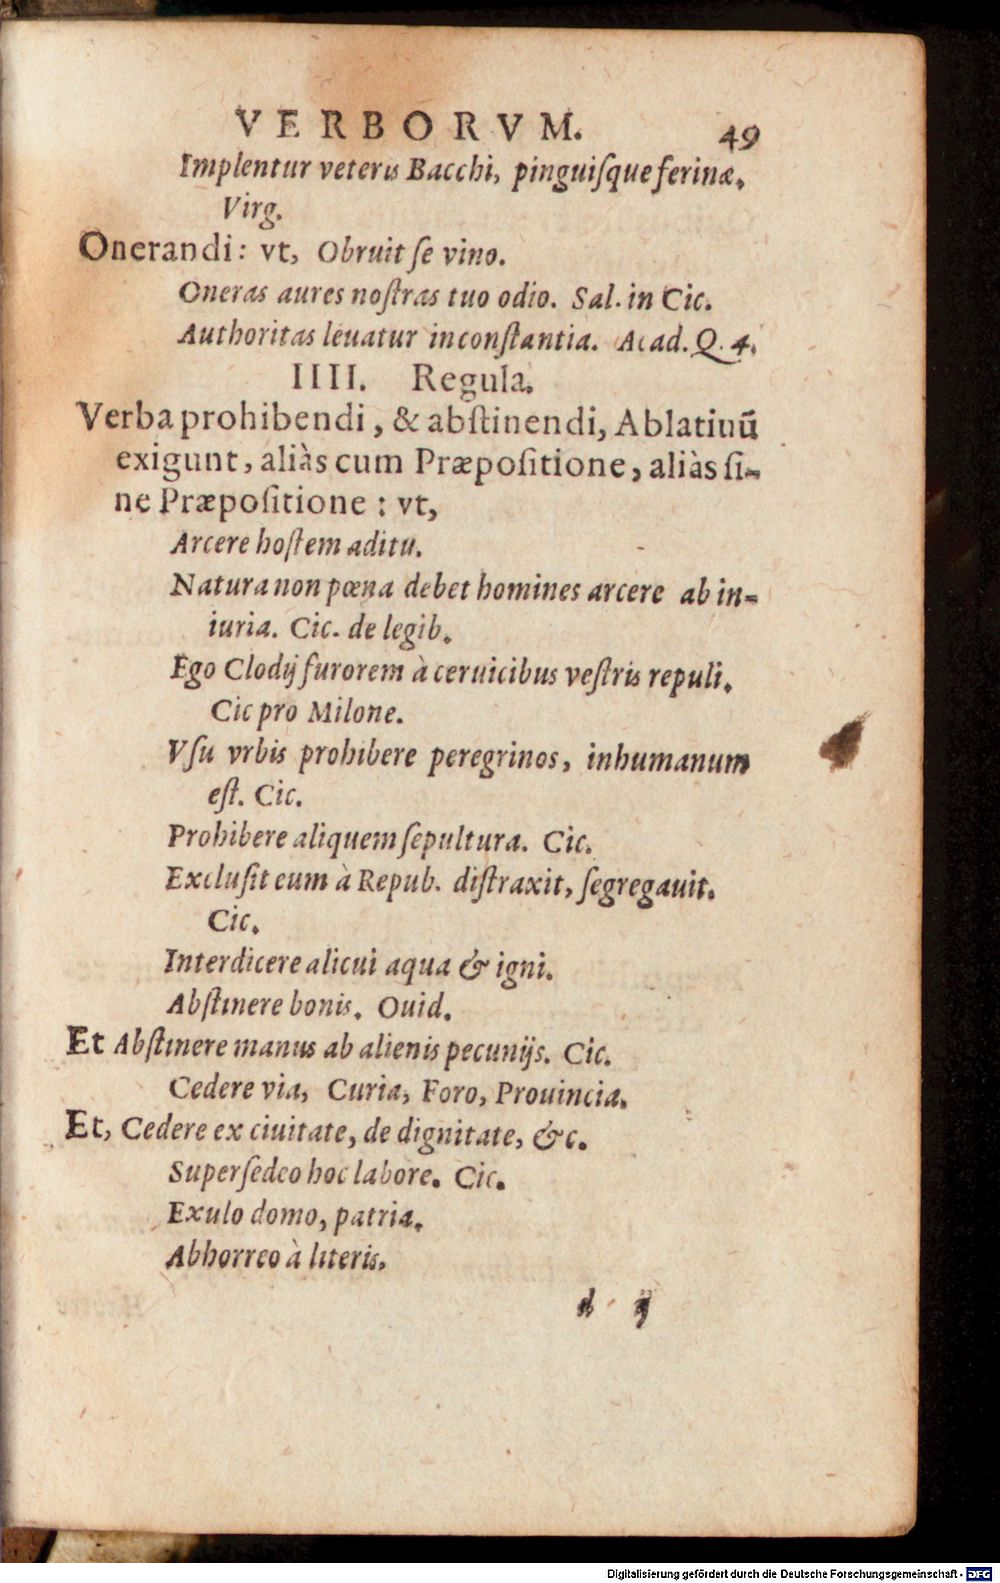 VERBORVM. 49
Implentur veteris Bacchi, pinguiſque ferinæ.
Virg.
Onerandi: vt, Obruit ſe vino.
Oneras aures noſtras tuo odio. Sal. in Cic.
Authoritas leuatur inconſtantia. Acad. Q. 4.
IIII. Regula.
Verba prohibendi, & abſtinendi, Ablatiuū
exigunt, aliàs cum Præpoſitione, aliàs ſi-
ne Præpoſitione: vt,
Arcere hoſtem aditu.
Natura non pœna debet homines arcere ab in-
iuria. Cic. de legib.
Ego Clodij furorem à ceruicibus veſtris repuli.
Cic pro Milone.
Vſu vrbis prohibere peregrinos, inhumanum
eſt. Cic.
Prohibere aliquem ſepultura. Cic.
Excluſit eum à Repub. diſtraxit, ſegregauit.
Cic.
Interdicere alicui aqua & igni.
Abſtinere bonis. Ouid.
Et Abſtinere manus ab alienis pecunijs. Cic.
Cedere via, Curia, Foro, Prouincia.
Et, Cedere ex ciuitate, de dignitate, &c.
Superſedeo hoc labore. Cic.
Exulo domo, patria.
Abhorreo à literis.
d ij
Digitalisierung gefördert durch die Deutsche Forschungsgemeinschaft - DFG